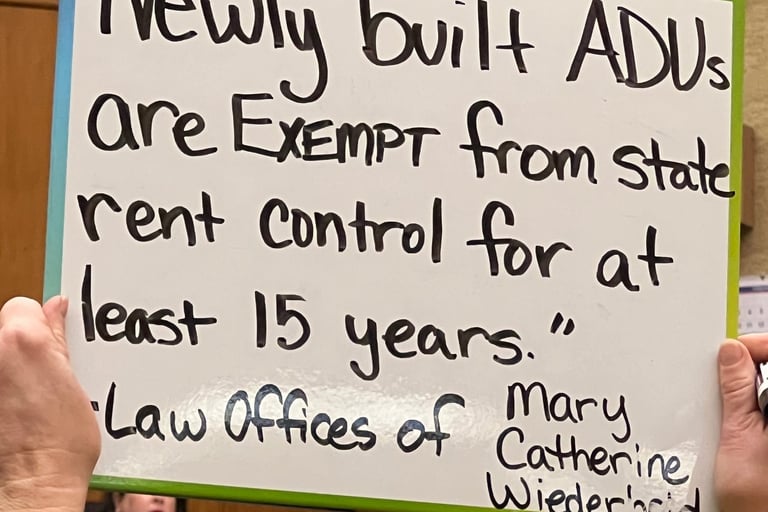 Newly built ADUs
are EXEMPT from state
rent control for at
least 15 years."
-Law Offices of Mary
Catherine